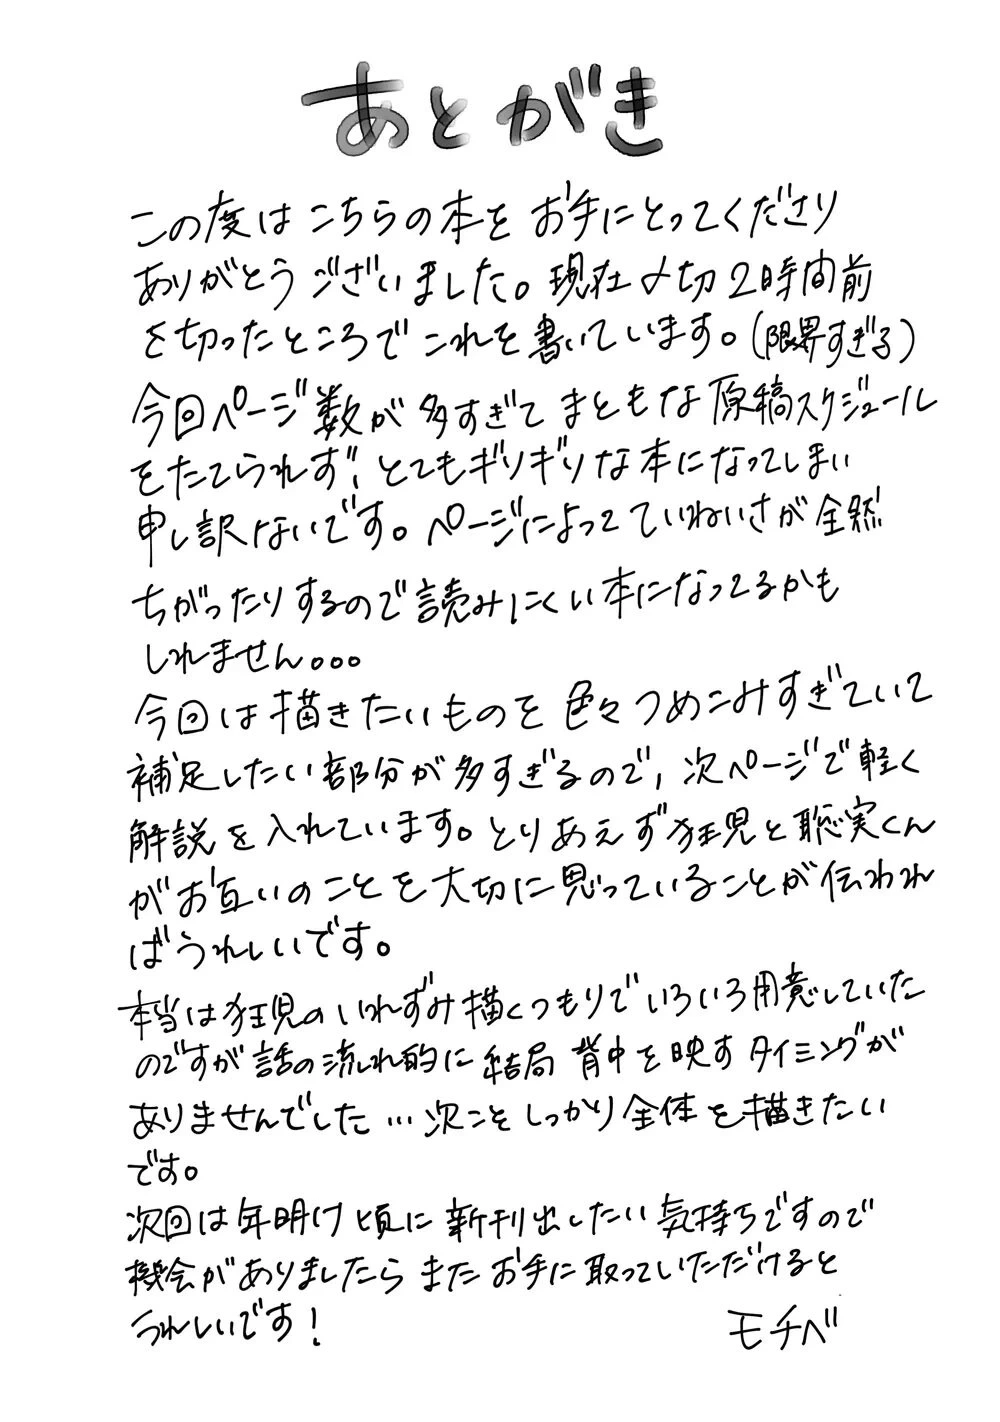 あとがき
この度はこちらの本をお手にとってくださり
ありがとうございました。現在〆切2時間前
を切ったところでこれを書いています。(限界すぎる)
今回ページ数が多すぎてまともな原稿スケジュール
をたてられず、とてもギリギリな本になってしまい
申し訳ないです。ページによってていねいさが全然
ちがったりするので読みにくい本になってるかも
しれません。。。
今回は描きたいものを色々つめこみすぎていて
補足したい部分が多すぎるので、次ページで軽く
解説を入れています。とりあえず狂児と聡実くん
がお互いのことを大切に思っていることが伝われ
ばうれしいです。
本当は狂児のいれずみ描くつもりでいろいろ用意していた
のですが話の流れ的に結局背中を映すタイミングが
ありませんでした…次こそしっかり全体を描きたい
です。
次回は年明け頃に新刊出したい気持ちですので
機会がありましたらまたお手に取っていただけると
うれしいです!
モチベ